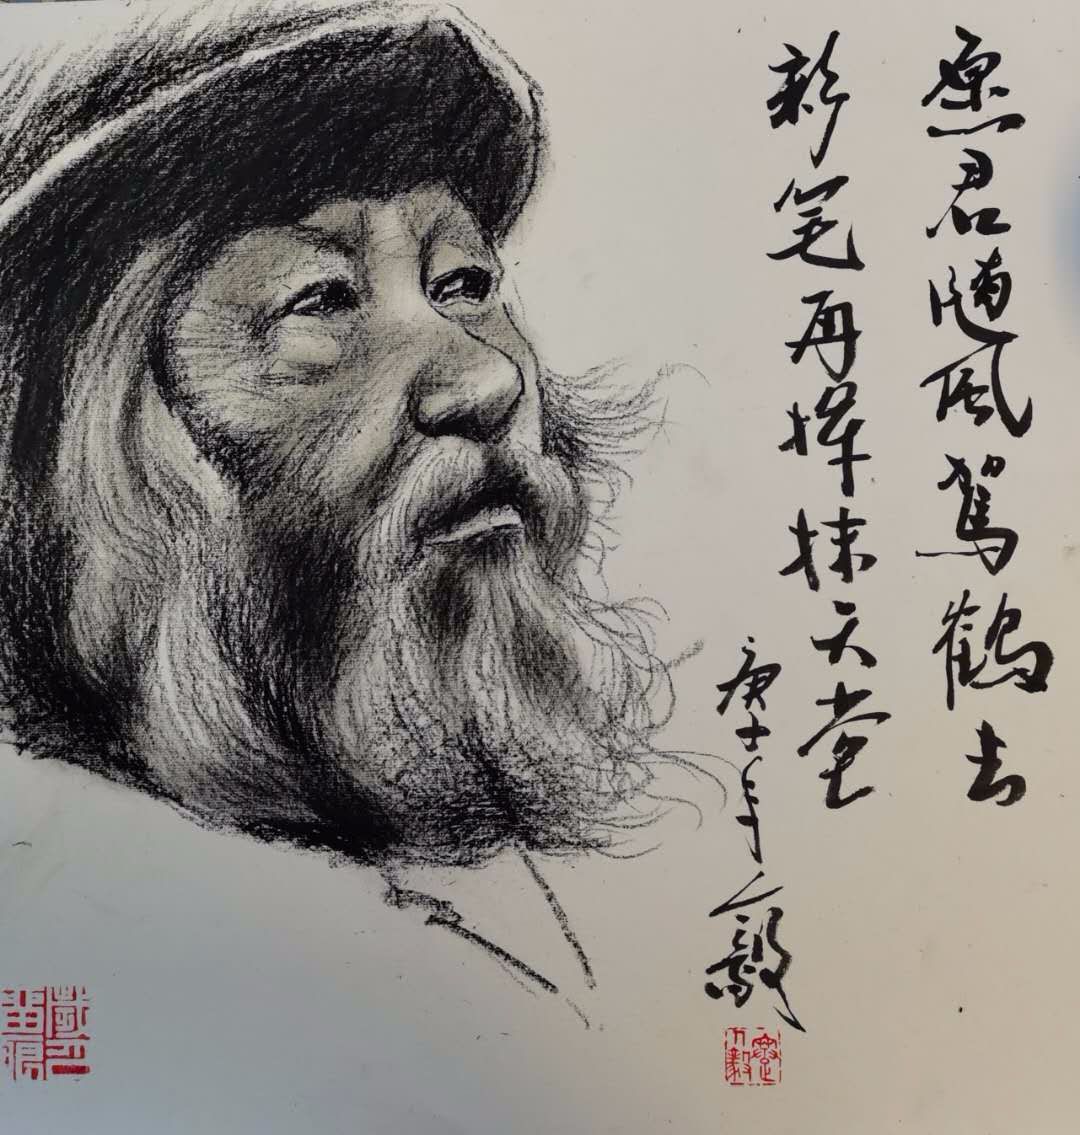 愿君随风驾鹤去
彩笔再挥抹天堂
庚子年